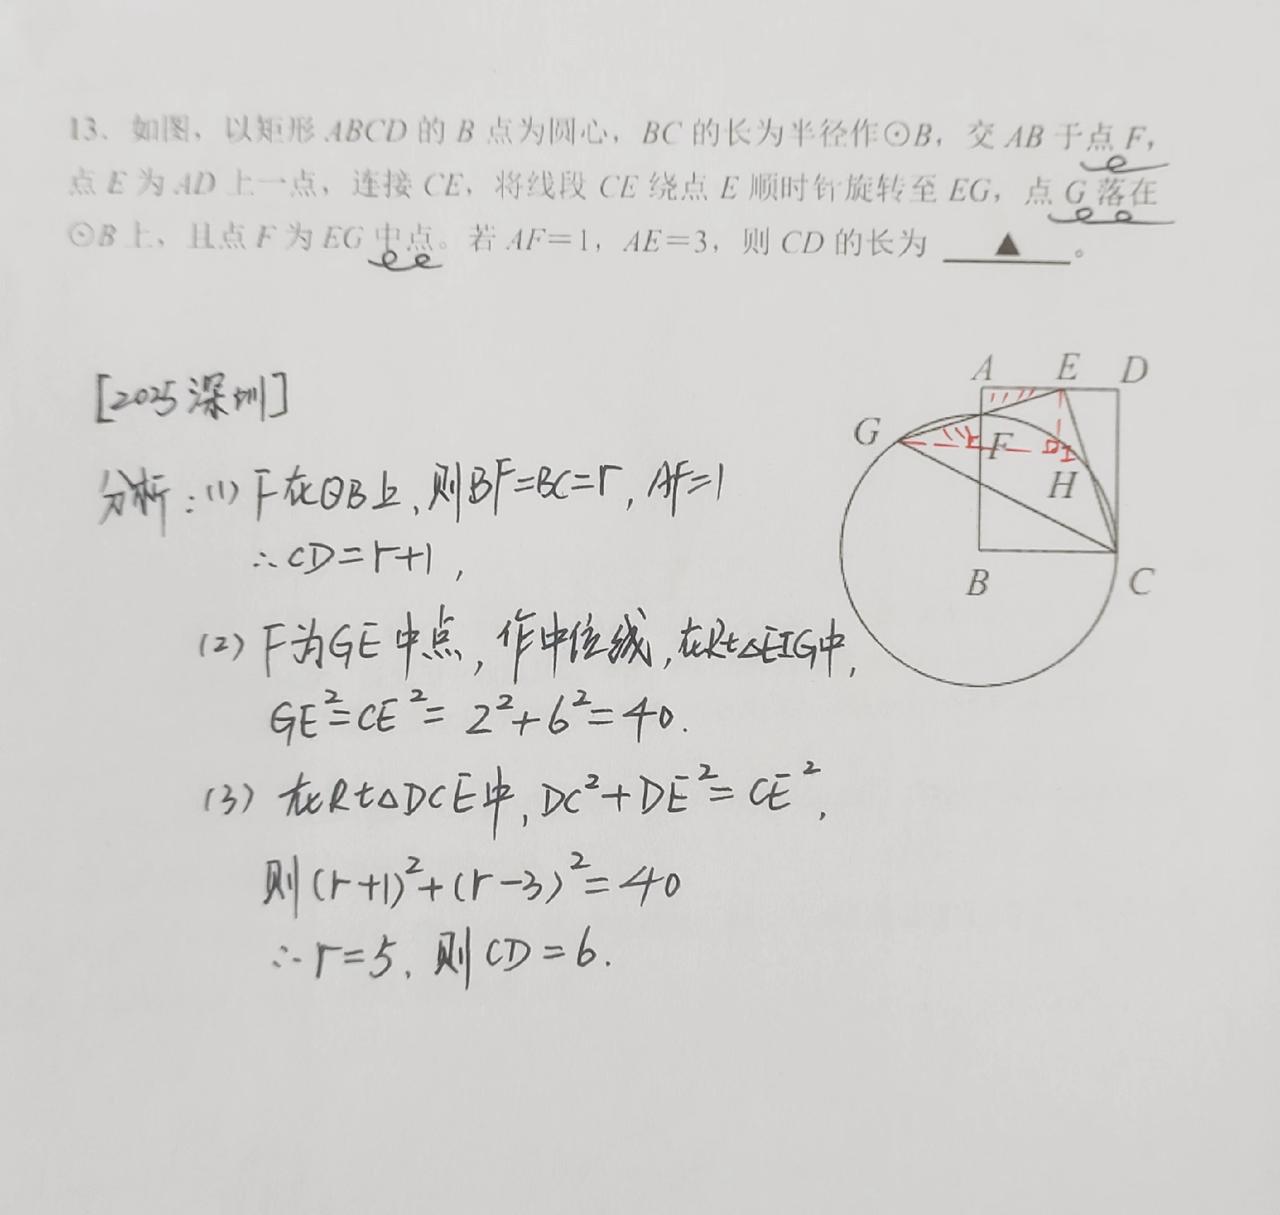 13. 如图，以矩形 ABCD 的 B 点为圆心，BC 的长为半径作⊙B，交 AB 于点 F，
点 E 为 AD 上一点，连接 CE，将线段 CE 绕点 E 顺时针旋转至 EG，点 G 落在
⊙B 上，且点 F 为 EG 中点。若 AF=1，AE=3，则 CD 的长为 ▲ 。
[2025深圳]
分析：(1) F在⊙B上，则BF=BC=r，AF=1
∴CD=r+1，
(2) F为GE中点，作中位线，在Rt△EIG中，
GE²=CE²=2²+6²=40.
(3) 在Rt△DCE中，DC²+DE²=CE²，
则(r+1)²+(r-3)²=40
∴r=5，则CD=6.
A E D
G F I
H
B C